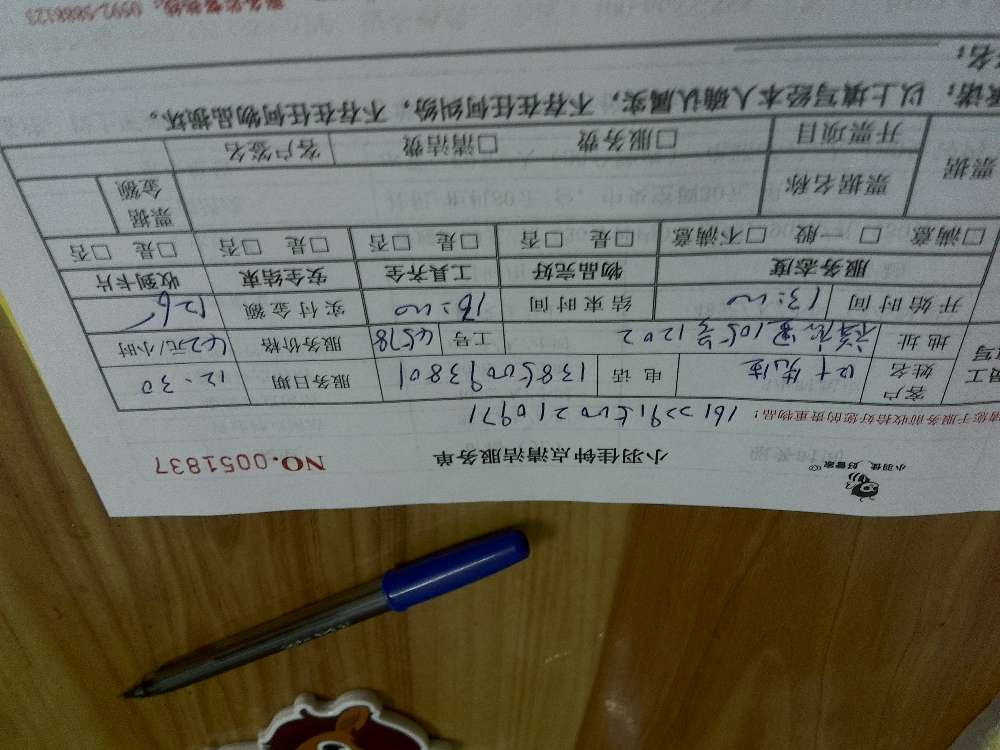 小羽佳 好管家
小羽佳钟点清洁服务单 NO.0051837
请您于服务前收拾好您的贵重物品!
客户姓名 先生 电话 13850093801 服务日期 12.30
地址 105号1202 工号 4578 服务价格 42元/小时
开始时间 13:00 结束时间 16:00 实付金额 126
服务态度 物品完好 工具齐全 安全结束 收到卡片
□满意 □一般 □不满意 □是 □否 □是 □否 □是 □否 □是 □否
票据 票据名称 票据金额
开票项目 □服务费 □清洁费 客户签名
承诺:以上填写经本人确认属实,不存在任何纠纷,不存在任何物品损坏。
签名:
服务监督热线:0592-5888123